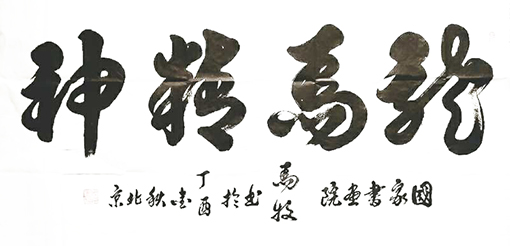 龍馬精神
國家書画院馬牧书於丁酉金秋北京